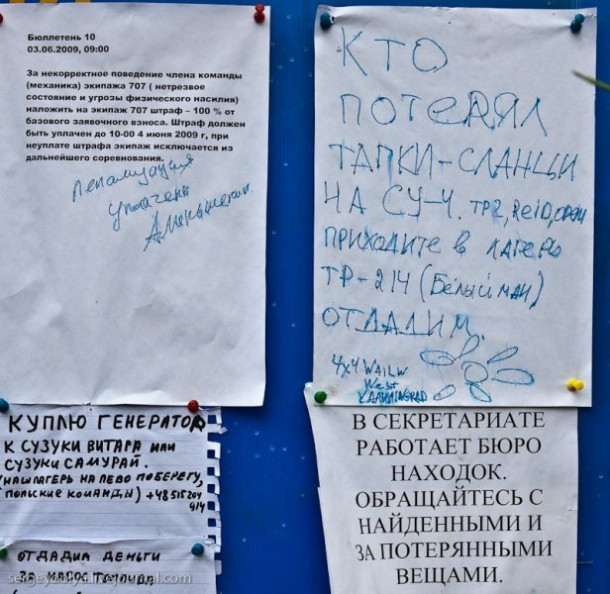 Бюллетень 10
03.06.2009, 09:00
За некорректное поведение члена команды
(механика) экипажа 707 ( нетрезвое
состояние и угрозы физического насилия)
наложить на экипаж 707 штраф – 100 % от
базового заявочного взноса. Штраф должен
быть уплачен до 10-00 4 июня 2009 г, при
неуплате штрафа экипаж исключается из
дальнейшего соревнования.
уплачена
КТО
ПОТЕРЯЛ
ТАПКИ-СЛАНЦЫ
НА СУ-4. ТР2, ReiD,
ПРИХОДИТЕ В ЛАГЕРЬ
ТР-214 (Белый МАН)
ОТДАДИМ.
4x4
West
KALININGRAD
КУПЛЮ ГЕНЕРАТОР
К СУЗУКИ ВИТАРА ИЛИ
СУЗУКИ САМУРАЙ.
(НАШ ЛАГЕРЬ НА ЛЕВО ПОБЕРЕГУ,
ПОЛЬСКИЕ КОМАНДЫ) +48515204
914
ОТДАДИМ ДЕНЬГИ
ЗА
В СЕКРЕТАРИАТЕ
РАБОТАЕТ БЮРО
НАХОДОК.
ОБРАЩАЙТЕСЬ С
НАЙДЕННЫМИ И
ЗА ПОТЕРЯННЫМИ
ВЕЩАМИ.